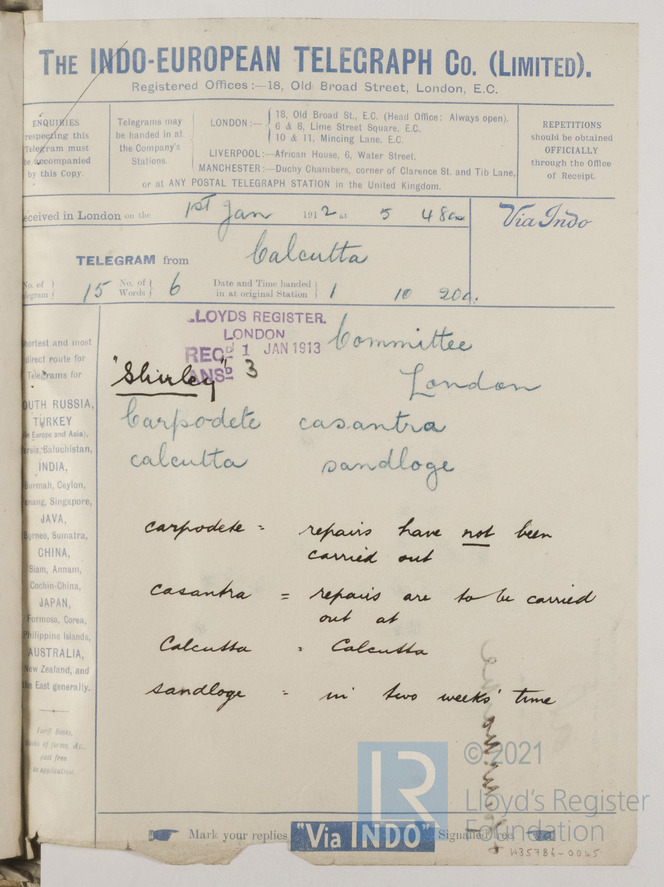 THE INDO-EUROPEAN TELEGRAPH Co. (LIMITED).
Registered Offices:—18, Old Broad Street, London, E.C.
ENQUIRIES
respecting this
Telegram must
be accompanied
by this Copy.
Telegrams may
be handed in at
the Company's
Stations.
LONDON:— 18, Old Broad St., E.C. (Head Office: Always open).
6 & 8, Lime Street Square, E.C.
10 & 11, Mincing Lane, E.C.
LIVERPOOL:—African House, 6, Water Street.
MANCHESTER:—Duchy Chambers, corner of Clarence St. and Tib Lane,
or at ANY POSTAL TELEGRAPH STATION in the United Kingdom.
REPETITIONS
should be obtained
OFFICIALLY
through the Office
of Receipt.
eceived in London on the 1st Jan 1912 at 5 48a
Via Indo
TELEGRAM from Calcutta
No. of
egram 15 No. of
Words 6 Date and Time handed
in at original Station 1 10 20a.
LLOYDS REGISTER.
LONDON
REC'd 1 JAN 1913
ANS'd 3
"Shirley"
Committee
London
Carpodete casantra
calcutta sandloge
carpodete = repairs have not been
carried out
casantra = repairs are to be carried
out at
Calcutta = Calcutta
sandloge = in two weeks' time
hortest and most
direct route for
Telegrams for
OUTH RUSSIA,
TURKEY
(in Europe and Asia),
ersia, Baluchistan,
INDIA,
Burmah, Ceylon,
enang, Singapore,
JAVA,
Borneo, Sumatra,
CHINA,
Siam, Annam,
Cochin-China,
JAPAN,
Formosa, Corea,
Philippine Islands,
AUSTRALIA,
New Zealand, and
the East generally.
Tariff Books,
books of forms, &c.,
post free
on application.
Mark your replies "Via INDO"
© 2021
LR
Lloyd's Register
Foundation
W35786-0045